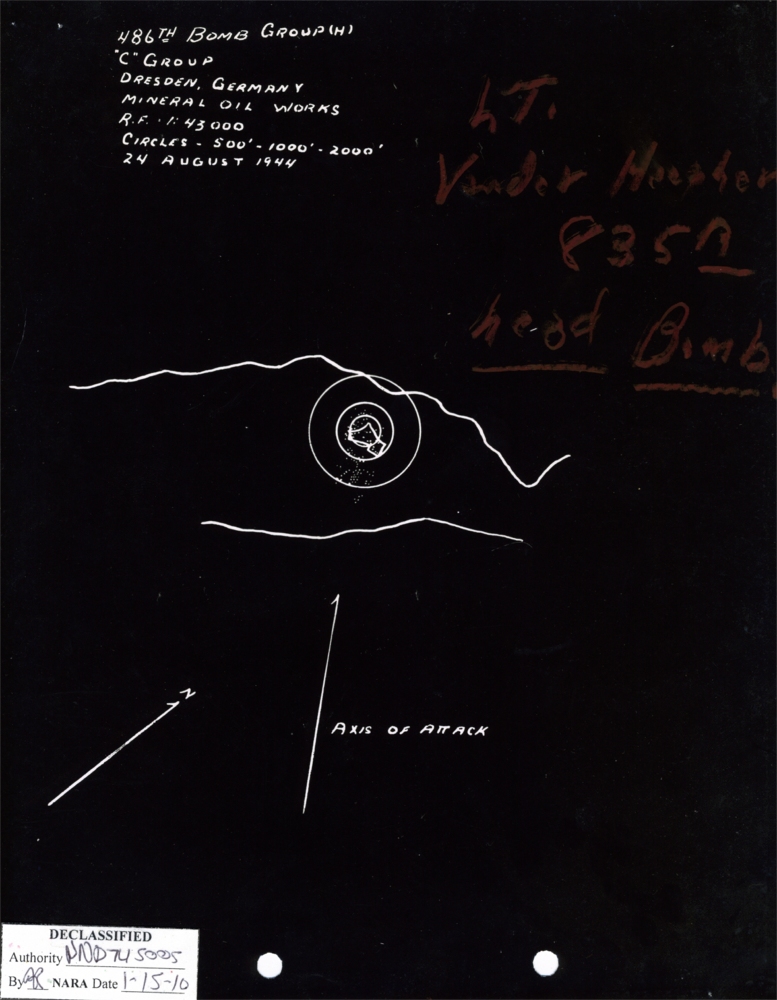 486TH BOMB GROUP (H)
"C" GROUP
DRESDEN, GERMANY
MINERAL OIL WORKS
R.F. 1:43000
CIRCLES - 500' - 1000' - 2000'
24 AUGUST 1944
LT.
Vander
835
head Bomb
N
AXIS OF ATTACK
DECLASSIFIED
Authority NND 745005
By NARA Date 1-15-10